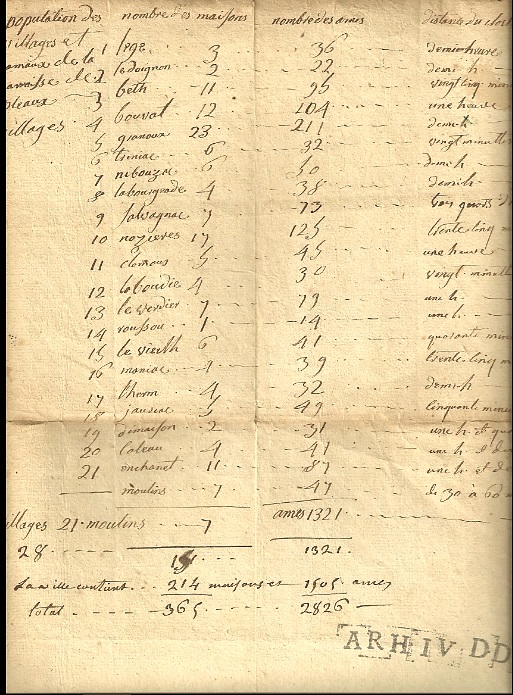 population des nombre des maisons nombre des ames distance du clocher
villages et
hamaux de la 1 3 36 demie heure
paroisse de 2 ledoignon 2 22 demi-h
pleaux 3 beth 11 95 vingt cinq min
villages 4 bouval 12 104 une heure
5 granoux 23 211 demi-h
6 triniac 6 32 vingt minutes
7 ribouzac 6 30 demi-h
8 labourgeade 4 38 demi-h
9 salvagnac 7 73 trois quarts
10 nozieres 17 125 trente cinq m
11 5 45 une heure
12 laboudie 4 30 vingt minutes
13 le verdier 7 79 une h.
14 roussou 1 14 une h.
15 le vieilh 6 41 quarante min
16 maniac 4 39 trente cinq m
17 lherm 4 32 demi-h
18 jausiac 5 49 cinquante minu
19 dimaison 2 31 une h. et qua
20 loteau 4 41 une h. et d
21 enchanet 11 87 une h et d
moulins 7 47 de 30 à 60 m
ames 1321
villages 21 moulins 7
28 151 1321
La ville contient 214 maisons et 1505 ames
total 365 2826
ARHIV DD